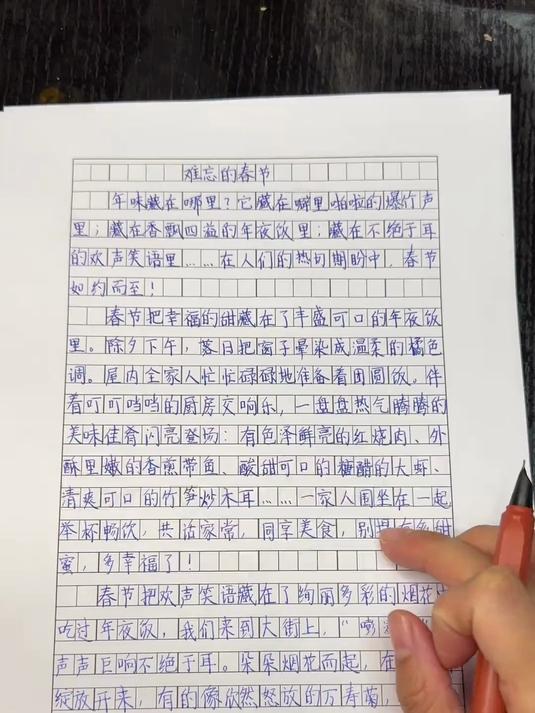 难忘的春节
年味藏在哪里？它藏在噼里啪啦的爆竹声
里；藏在香飘四溢的年夜饭里；藏在不绝于耳
的欢声笑语里……在人们的热切期盼中，春节
如约而至！
春节把幸福的甜藏在了丰盛可口的年夜饭
里。除夕下午，落日把窗子晕染成温柔的橘色
调。屋内全家人忙忙碌碌地准备着团圆饭。伴
着叮叮当当的厨房交响乐，一盘盘热气腾腾的
美味佳肴闪亮登场：有色泽鲜亮的红烧肉、外
酥里嫩的香煎带鱼、酸甜可口的糖醋的大虾、
清爽可口的竹笋炒木耳……一家人围坐在一起
举杯畅饮，共话家常，同享美食，别提有多甜
蜜，多幸福了！
春节把欢声笑语藏在了绚丽多彩的烟花
吃过年夜饭，我们来到大街上，“嘭
声声巨响不绝于耳。朵朵烟花而起，在
绽放开来，有的像欣然怒放的万寿菊，